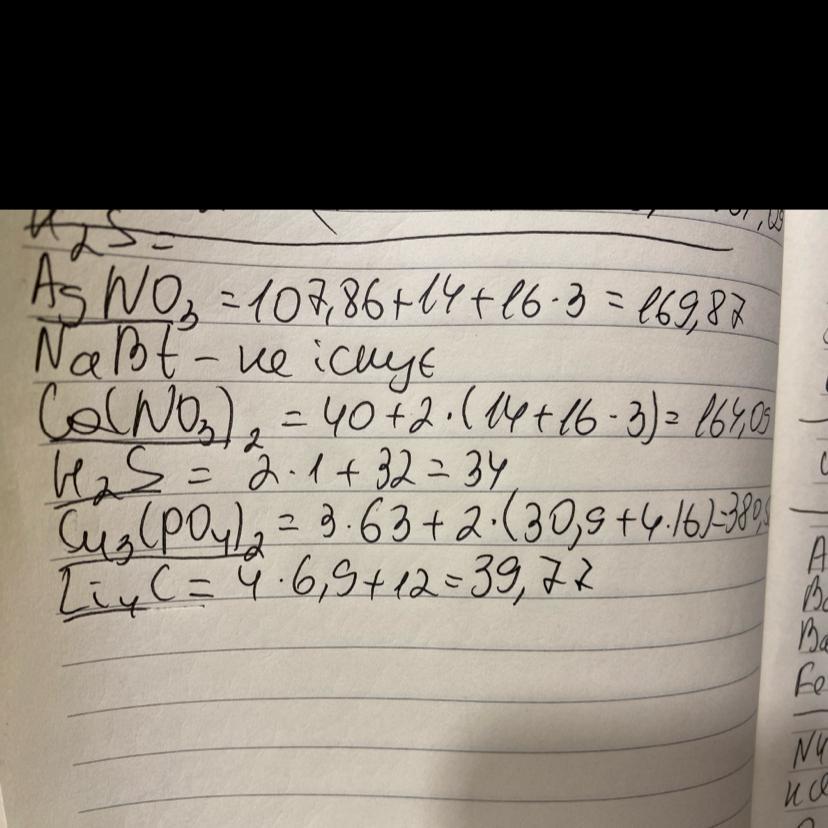 H₂S =
AgNO₃ = 107,86+14+16·3 = 169,87
NaBt – не існує
Ca(NO₃)₂ = 40+2·(14+16·3)= 164,09
H₂S = 2·1+32=34
Cu₃(PO₄)₂ = 3·63+2·(30,9+4·16)=380,
Li₄C = 4·6,9+12=39,77
A
Ba
Fe